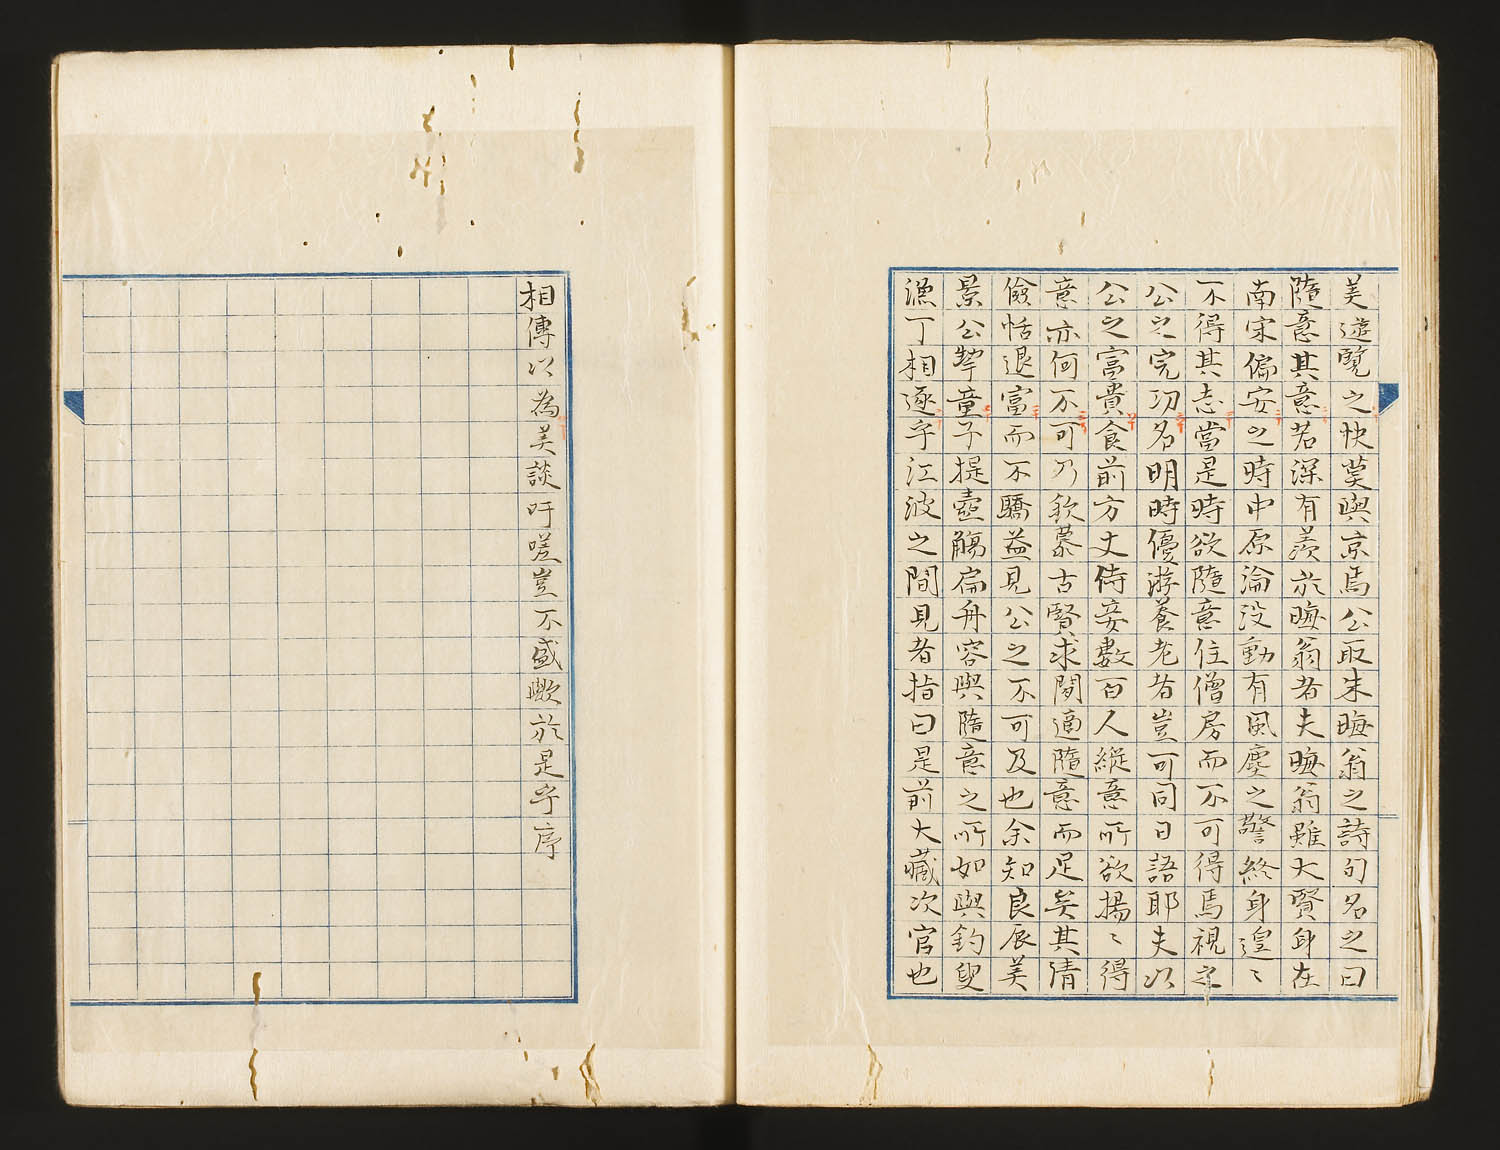 美遊覽之快莫與京焉公取朱晦翁之詩句名之曰
隨意其意若深有羨於晦翁者夫晦翁雖大賢身在
南宋偏安之時中原淪没動有風塵之警終身遑〻
不得其志當是時欲隨意住僧房而不可得焉視之
公之完功名明時優游養老者豈可同日語耶夫以
公之富貴食前方丈侍妾數百人縱意所欲揚〻得
意亦何不可乃欽慕古賢求閒適隨意而足矣其清
儉恬退富而不驕益見公之不可及也余知良辰美
景公挈童子提壺觴扁舟容與隨意之所如與釣叟
漁丁相逐乎江波之間見者指曰是前大藏次官也
相傳以為美談吁嗟豈不盛歟於是乎序